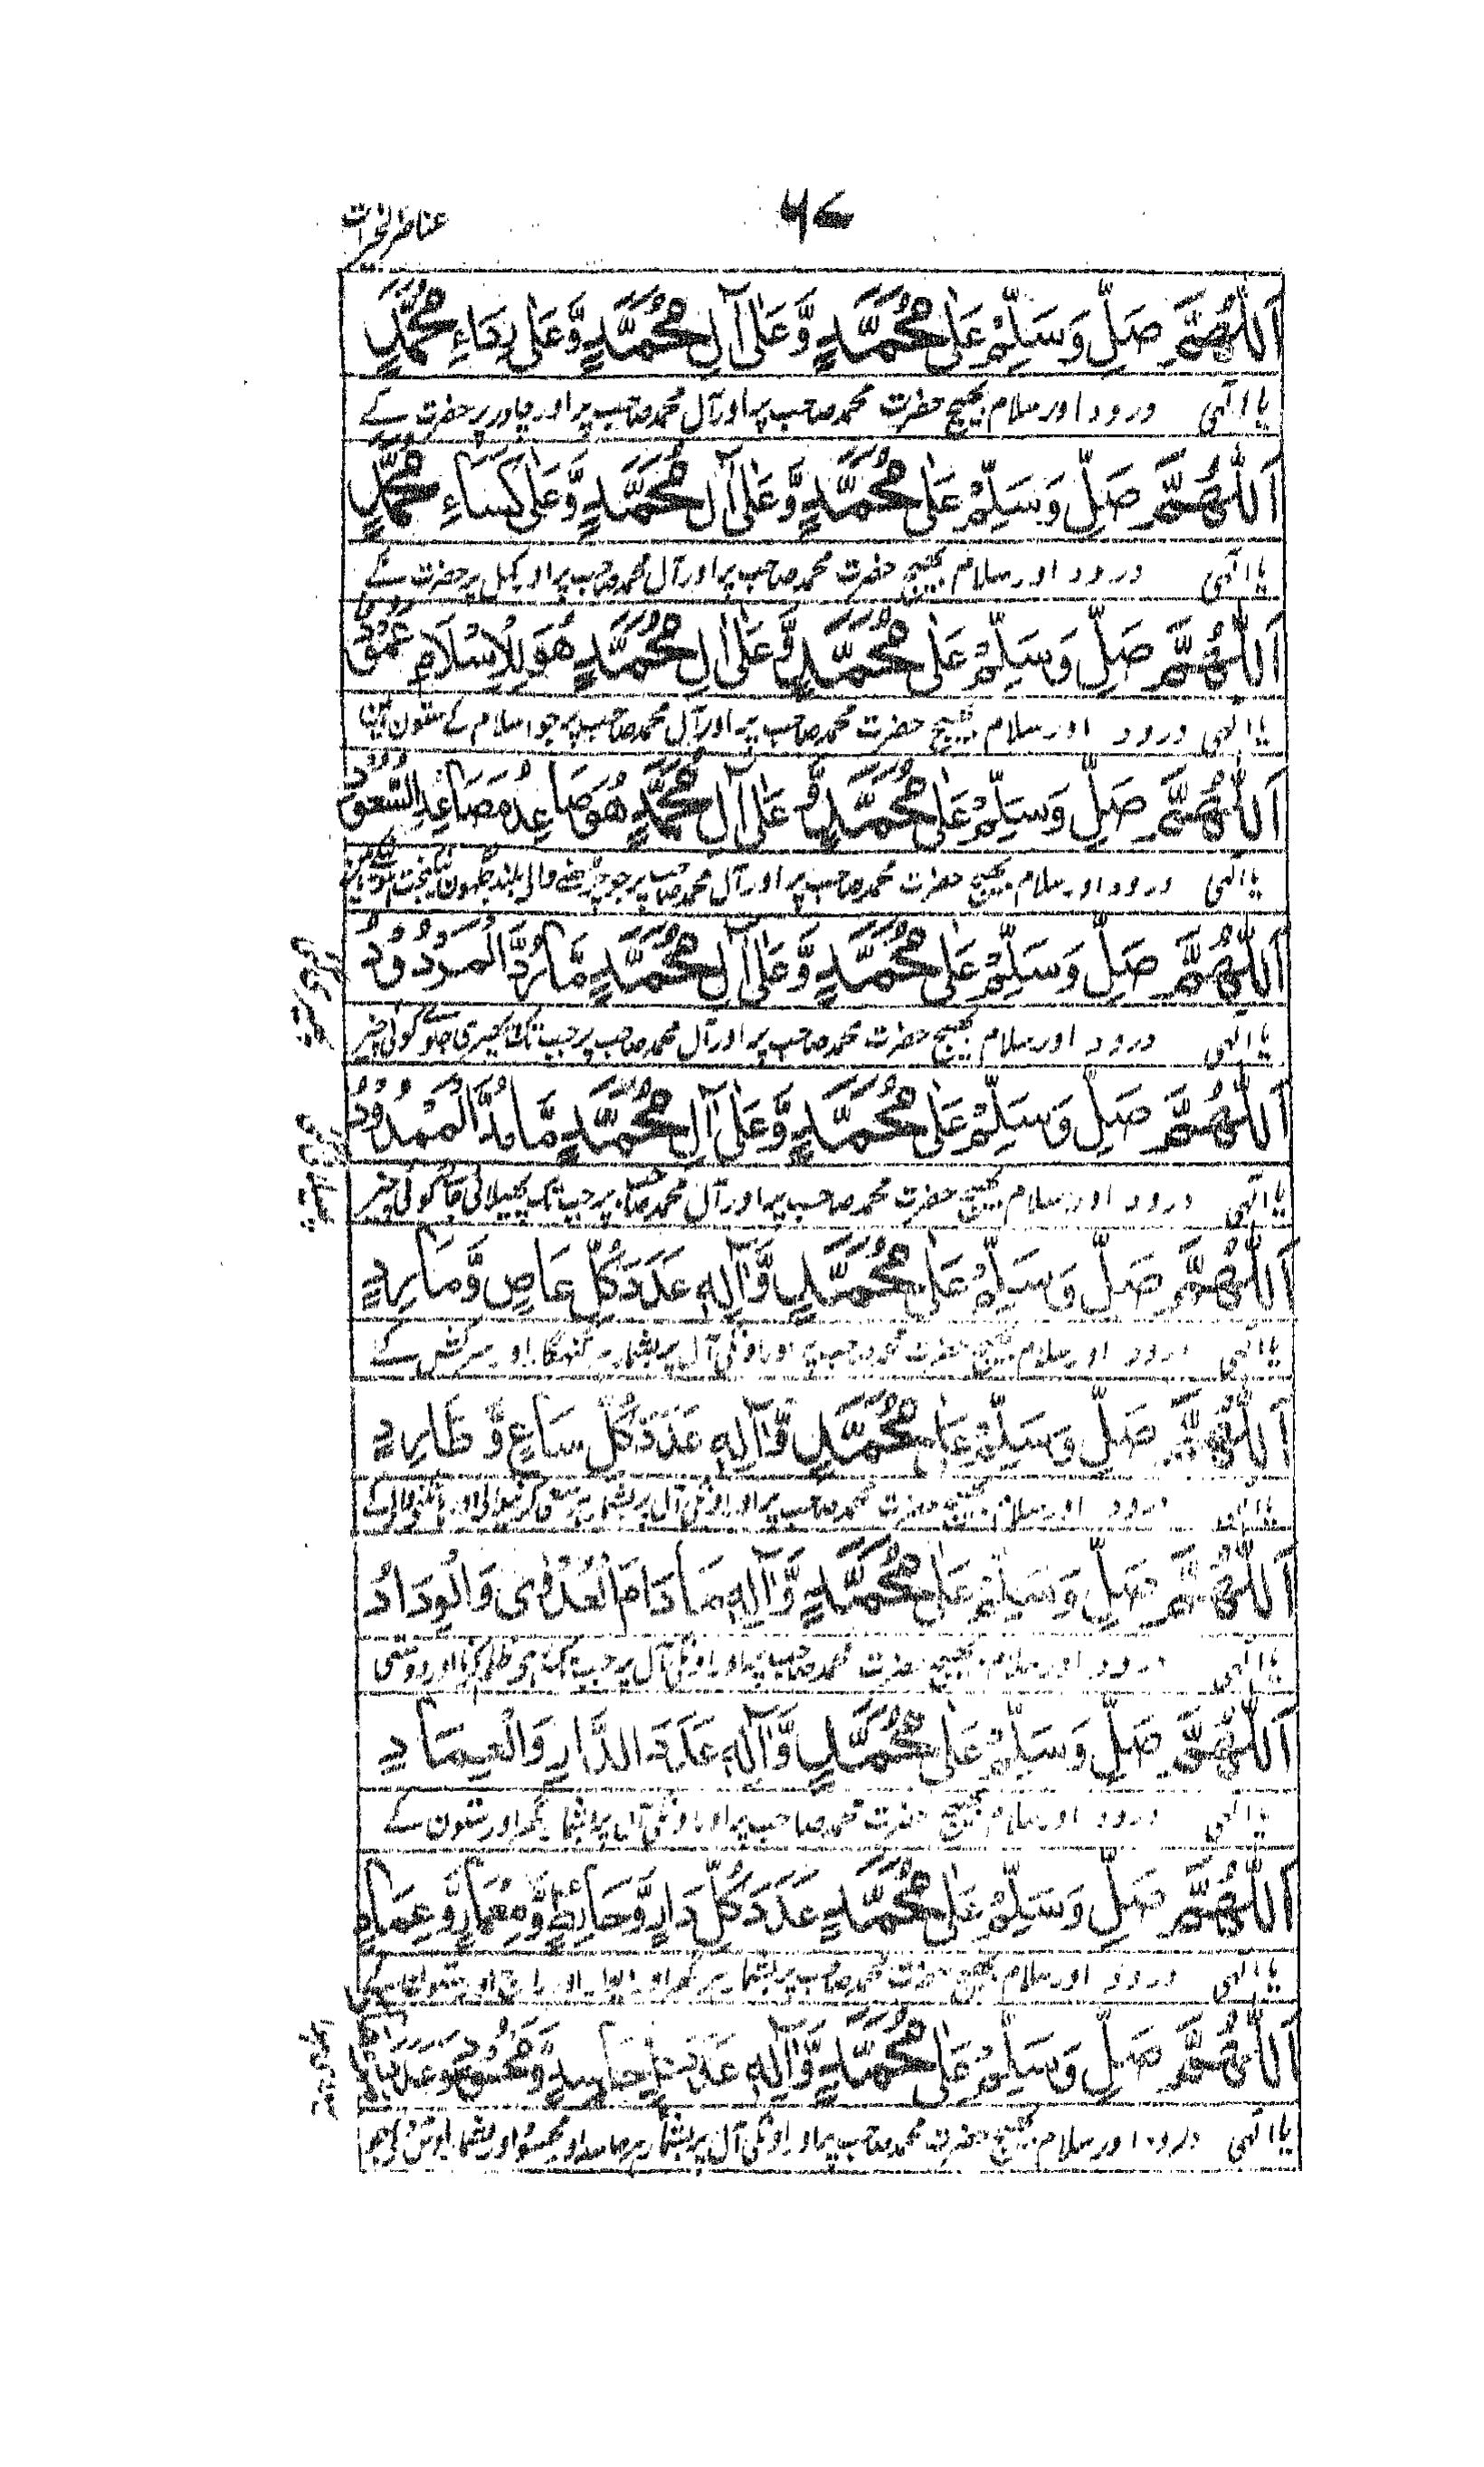 ٦٧
عناصر الخیرات
اَللّٰهُمَّ صَلِّ وَسَلِّمْ عَلٰى مُحَمَّدٍ وَّعَلٰى آلِ مُحَمَّدٍ وَّعَلٰى رِدَاءِ مُحَمَّدٍ
یا الٰہی درود اور سلام بھیج حضرت محمد صاحب پر اور آل محمد صاحب پر اور چادر پر حضرت کے
اَللّٰهُمَّ صَلِّ وَسَلِّمْ عَلٰى مُحَمَّدٍ وَّعَلٰى آلِ مُحَمَّدٍ وَّعَلٰى كِسَاءِ مُحَمَّدٍ
یا الٰہی درود اور سلام بھیج حضرت محمد صاحب پر اور آل محمد صاحب پر اور کمبل پر حضرت کے
اَللّٰهُمَّ صَلِّ وَسَلِّمْ عَلٰى مُحَمَّدٍ وَّعَلٰى اٰلِ مُحَمَّدٍ هُوَ لِلْاِسْلَامِ عَمُوْدٌ
یا الٰہی درود اور سلام بھیج حضرت محمد صاحب پر اور آل محمد صاحب پر جو اسلام کے ستون
اَللّٰهُمَّ صَلِّ وَسَلِّمْ عَلٰى مُحَمَّدٍ وَّعَلٰى آلِ مُحَمَّدٍ هُوَ صَاعِدُ مَصَاعِدِ السُّعُوْدِ
یا الٰہی درود اور سلام بھیج حضرت محمد صاحب پر اور آل محمد صاحب پر جو چڑھنے والی بلند جگہوں
اَللّٰهُمَّ صَلِّ وَسَلِّمْ عَلٰى مُحَمَّدٍ وَّعَلٰى آلِ مُحَمَّدٍ مَّا رُدَّ الْمَرْدُوْدُ
یا الٰہی درود اور سلام بھیج حضرت محمد صاحب پر اور آل محمد صاحب پر جب تک پھیری جاوے کوئی چیز
اَللّٰهُمَّ صَلِّ وَسَلِّمْ عَلٰى مُحَمَّدٍ وَّعَلٰى آلِ مُحَمَّدٍ مَّا مُدَّ الْمَمْدُوْدُ
یا الٰہی درود اور سلام بھیج حضرت محمد صاحب پر اور آل محمد صاحب پر جب تک پھیلائی جائے کوئی چیز
اَللّٰهُمَّ صَلِّ وَسَلِّمْ عَلٰى مُحَمَّدٍ وَّآلِهٖ عَدَدَ كُلِّ عَاصٍ وَّمَارِدٍ
یا الٰہی درود اور سلام بھیج حضرت محمد صاحب پر اور اونکی آل پر بشمار ہر گنہگار اور سرکش کے
اَللّٰهُمَّ صَلِّ وَسَلِّمْ عَلٰى مُحَمَّدٍ وَّآلِهٖ عَدَدَ كُلِّ سَاعٍ وَّطَارِدٍ
یا الٰہی درود اور سلام بھیج حضرت محمد صاحب پر اور اونکی آل پر بشمار ہر سعی کرنیوالے اور
اَللّٰهُمَّ صَلِّ وَسَلِّمْ عَلٰى مُحَمَّدٍ وَّآلِهٖ مَا دَامَ وَالْوِدَادُ
یا الٰہی درود اور سلام بھیج حضرت محمد صاحب پر اور اونکی آل پر جب تک ہے ظلم کرنا اور دوستی
اَللّٰهُمَّ صَلِّ وَسَلِّمْ عَلٰى مُحَمَّدٍ وَّآلِهٖ عَدَدَ الدَّارِ وَالْعِمَادِ
یا الٰہی درود اور سلام بھیج حضرت محمد صاحب پر اور اونکی آل پر بشمار گھر اور ستون کے
اَللّٰهُمَّ صَلِّ وَسَلِّمْ عَلٰى مُحَمَّدٍ عَدَدَ كُلِّ دَارٍ وَّحَائِطٍ وَّمِعْمَارٍ وَّعِمَادٍ
یا الٰہی درود اور سلام بھیج حضرت محمد صاحب پر بشمار ہر گھر اور دیوار اور راج اور ستون کے
اَللّٰهُمَّ صَلِّ وَسَلِّمْ عَلٰى مُحَمَّدٍ وَّآلِهٖ عَدَدَ حَاسِدٍ وَّمَحْسُوْدٍ
یا الٰہی درود اور سلام بھیج حضرت محمد صاحب پر اور اونکی آل پر بشمار ہر حاسد اور محسود اور